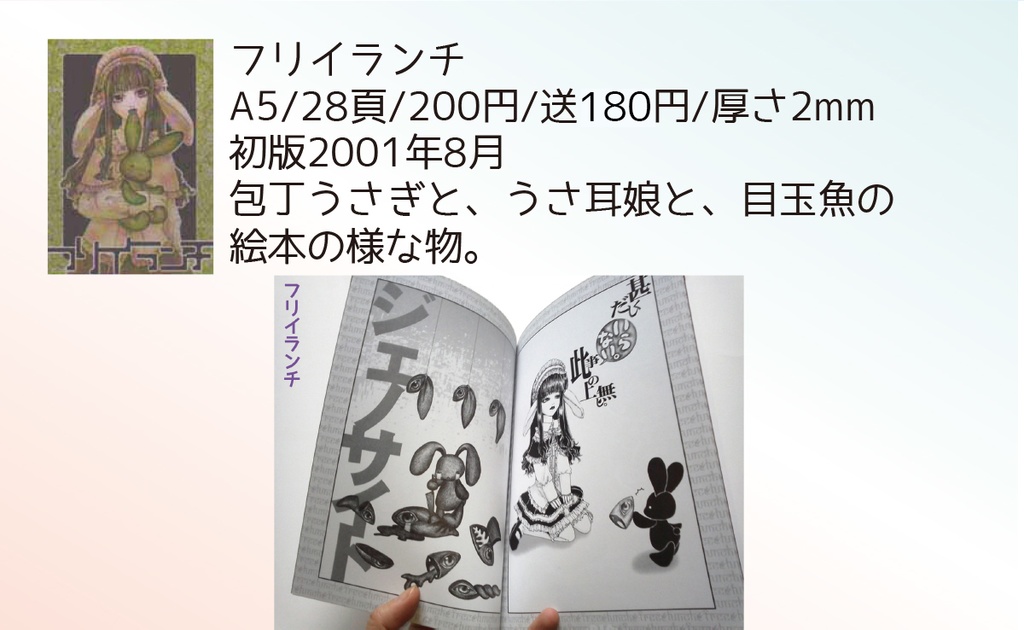 フリイランチ
A5/28頁/200円/送180円/厚さ2mm
初版2001年8月
包丁うさぎと、うさ耳娘と、目玉魚の
絵本の様な物。
フリイランチ
フリイランチ
ジェノサイド
甚く
だ
いら
ない。
此
の
上
無